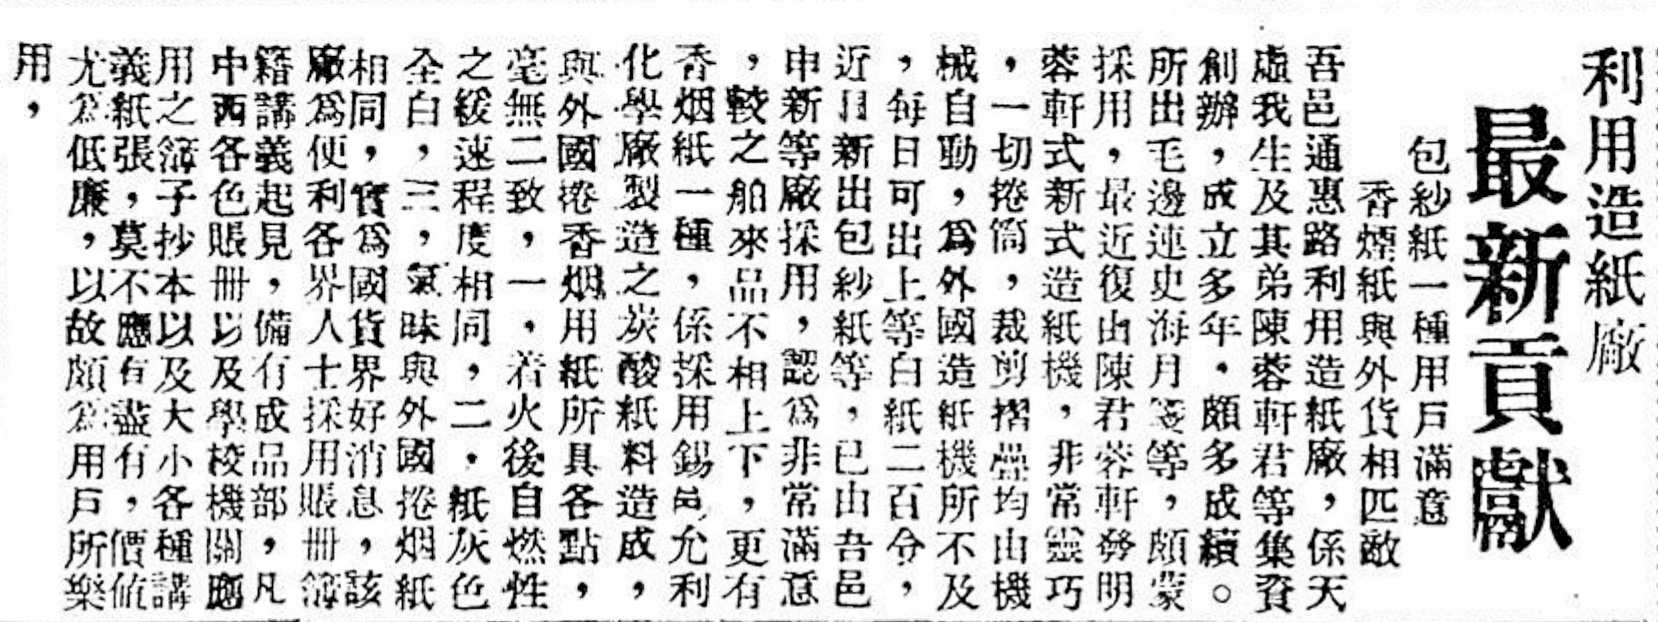 利用造紙廠
最新貢獻
包紗紙一種用戶滿意
香煙紙與外貨相匹敵
吾邑通惠路利用造紙廠，係天
虛我生及其弟陳蓉軒君等集資
創辦，成立多年，頗多成績。
所出毛邊連史海月箋等，頗蒙
採用，最近復由陳君蓉軒發明
蓉軒式新式造紙機，非常靈巧
，一切捲筒，裁剪摺疊均由機
械自動，爲外國造紙機所不及
，每日可出上等白紙二百令，
近日新出包紗紙等，已由吾邑
申新等廠採用，認爲非常滿意
，較之舶來品不相上下，更有
香烟紙一種，係採用錫邑允利
化學廠製造之炭酸紙料造成，
與外國捲香烟用紙所具各點，
毫無二致，一，着火後自燃性
之緩速程度相同，二，紙灰色
全白，三，氣味與外國捲烟紙
相同，實爲國貨界好消息，該
廠爲便利各界人士採用賬冊簿
籍講義起見，備有成品部，凡
中西各色賬冊以及學校機關應
用之簿子抄本以及大小各種講
義紙張，莫不應有盡有，價値
尤爲低廉，以故頗爲用戶所樂
用，